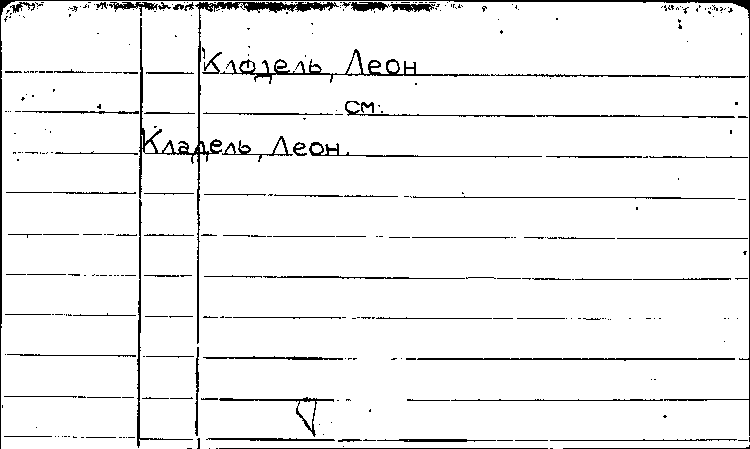 Клодель, Леон
см.
Кладель, Леон.